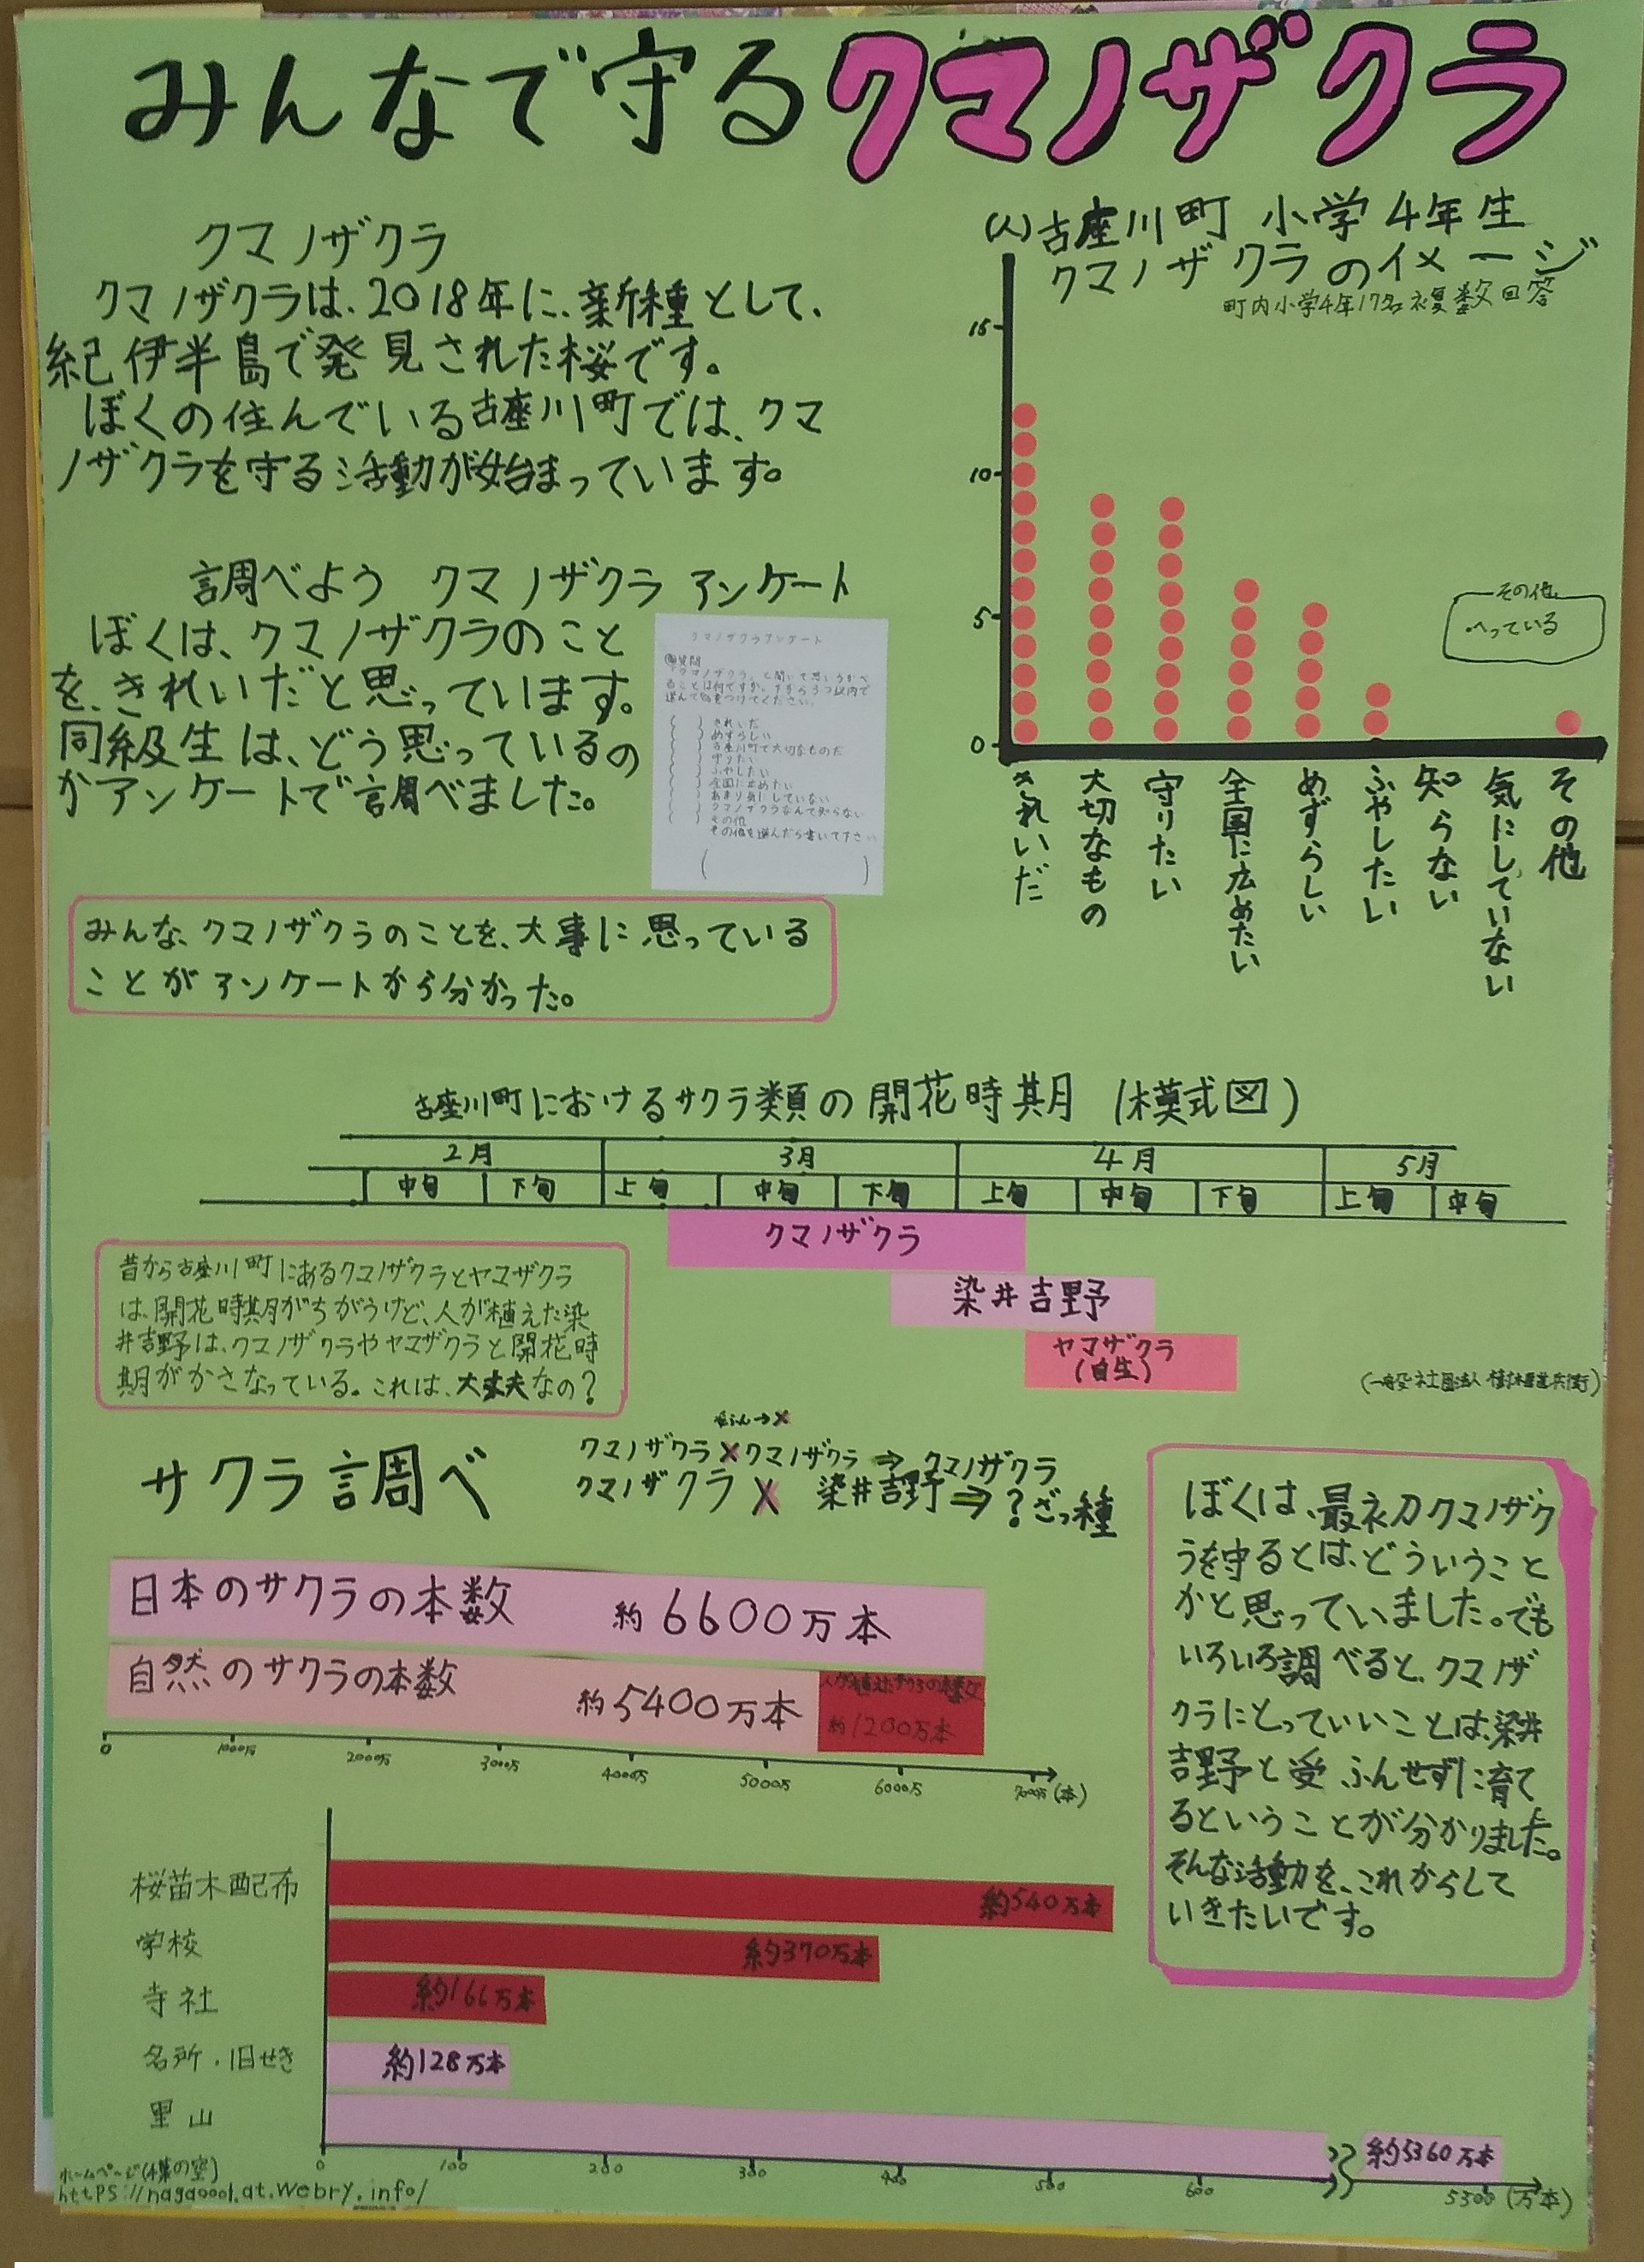 みんなで守るクマノザクラ
クマノザクラ
クマノザクラは、2018年に、新種として、
紀伊半島で発見された桜です。
ぼくの住んでいる古座川町では、クマ
ノザクラを守る活動が始まっています。
調べよう クマノザクラ アンケート
ぼくは、クマノザクラのこと
を、きれいだと思っています。
同級生は、どう思っているの
かアンケートで調べました。
クマノザクラアンケート
質問
「クマノザクラ」と聞いて思いうかべ
ることは何ですか。下から3つ以内で
選んで
( )きれいだ
( )めずらしい
( )古座川町で大切なものだ
( )守りたい
( )ふやしたい
( )全国に広めたい
( )あまり気にしていない
( )クマノザクラなんて知らない
( )その他
その他を選んだら書いて下さい
( )
みんな、クマノザクラのことを、大事に思っている
ことがアンケートから分かった。
(人)古座川町 小学4年生
クマノザクラのイメージ
町内小学4年17名複数回答
15
10
5
0
その他
・へっている
きれいだ
大切なもの
守りたい
全国に広めたい
めずらしい
ふやしたい
知らない
気にしていない
その他
古座川町におけるサクラ類の開花時期(模式図)
2月 3月 4月 5月
中旬 下旬 上旬 中旬 下旬 上旬 中旬 下旬 上旬 中旬
クマノザクラ
染井吉野
ヤマザクラ
(自生)
(一般社団法人
昔から古座川町にあるクマノザクラとヤマザクラ
は、開花時期がちがうけど、人が植えた染
井吉野は、クマノザクラやヤマザクラと開花時
期がかさなっている。これは、大丈夫なの?
サクラ調べ
受ふん→×
クマノザクラ×クマノザクラ⇒クマノザクラ
クマノザクラ×染井吉野⇒?ざっ種
日本のサクラの本数 約6600万本
自然のサクラの本数 約5400万本
人が植えたサクラの本数
約1200万本
0 1000万 2000万 3000万 4000万 5000万 6000万 7000万(本)
桜苗木配布 約540万本
学校 約370万本
寺社 約166万本
名所・旧せき 約128万本
里山 約5360万本
0 100 200 300 400 500 600 5300 (万本)
ぼくは、最初クマノザク
ラを守るとは、どういうこと
かと思っていました。でも
いろいろ調べると、クマノザ
クラにとっていいことは、染井
吉野と受ふんせずに育て
るということが分かりました。
そんな活動を、これからして
いきたいです。
ホームページ(4葉の空)
https://nagaoool.at.webry.info/